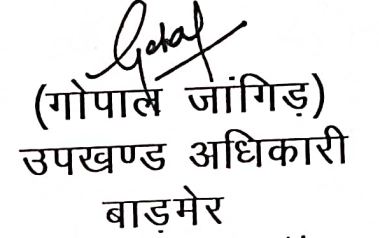 (गोपाल जांगिड़)
उपखण्ड अधिकारी
बाड़मेर